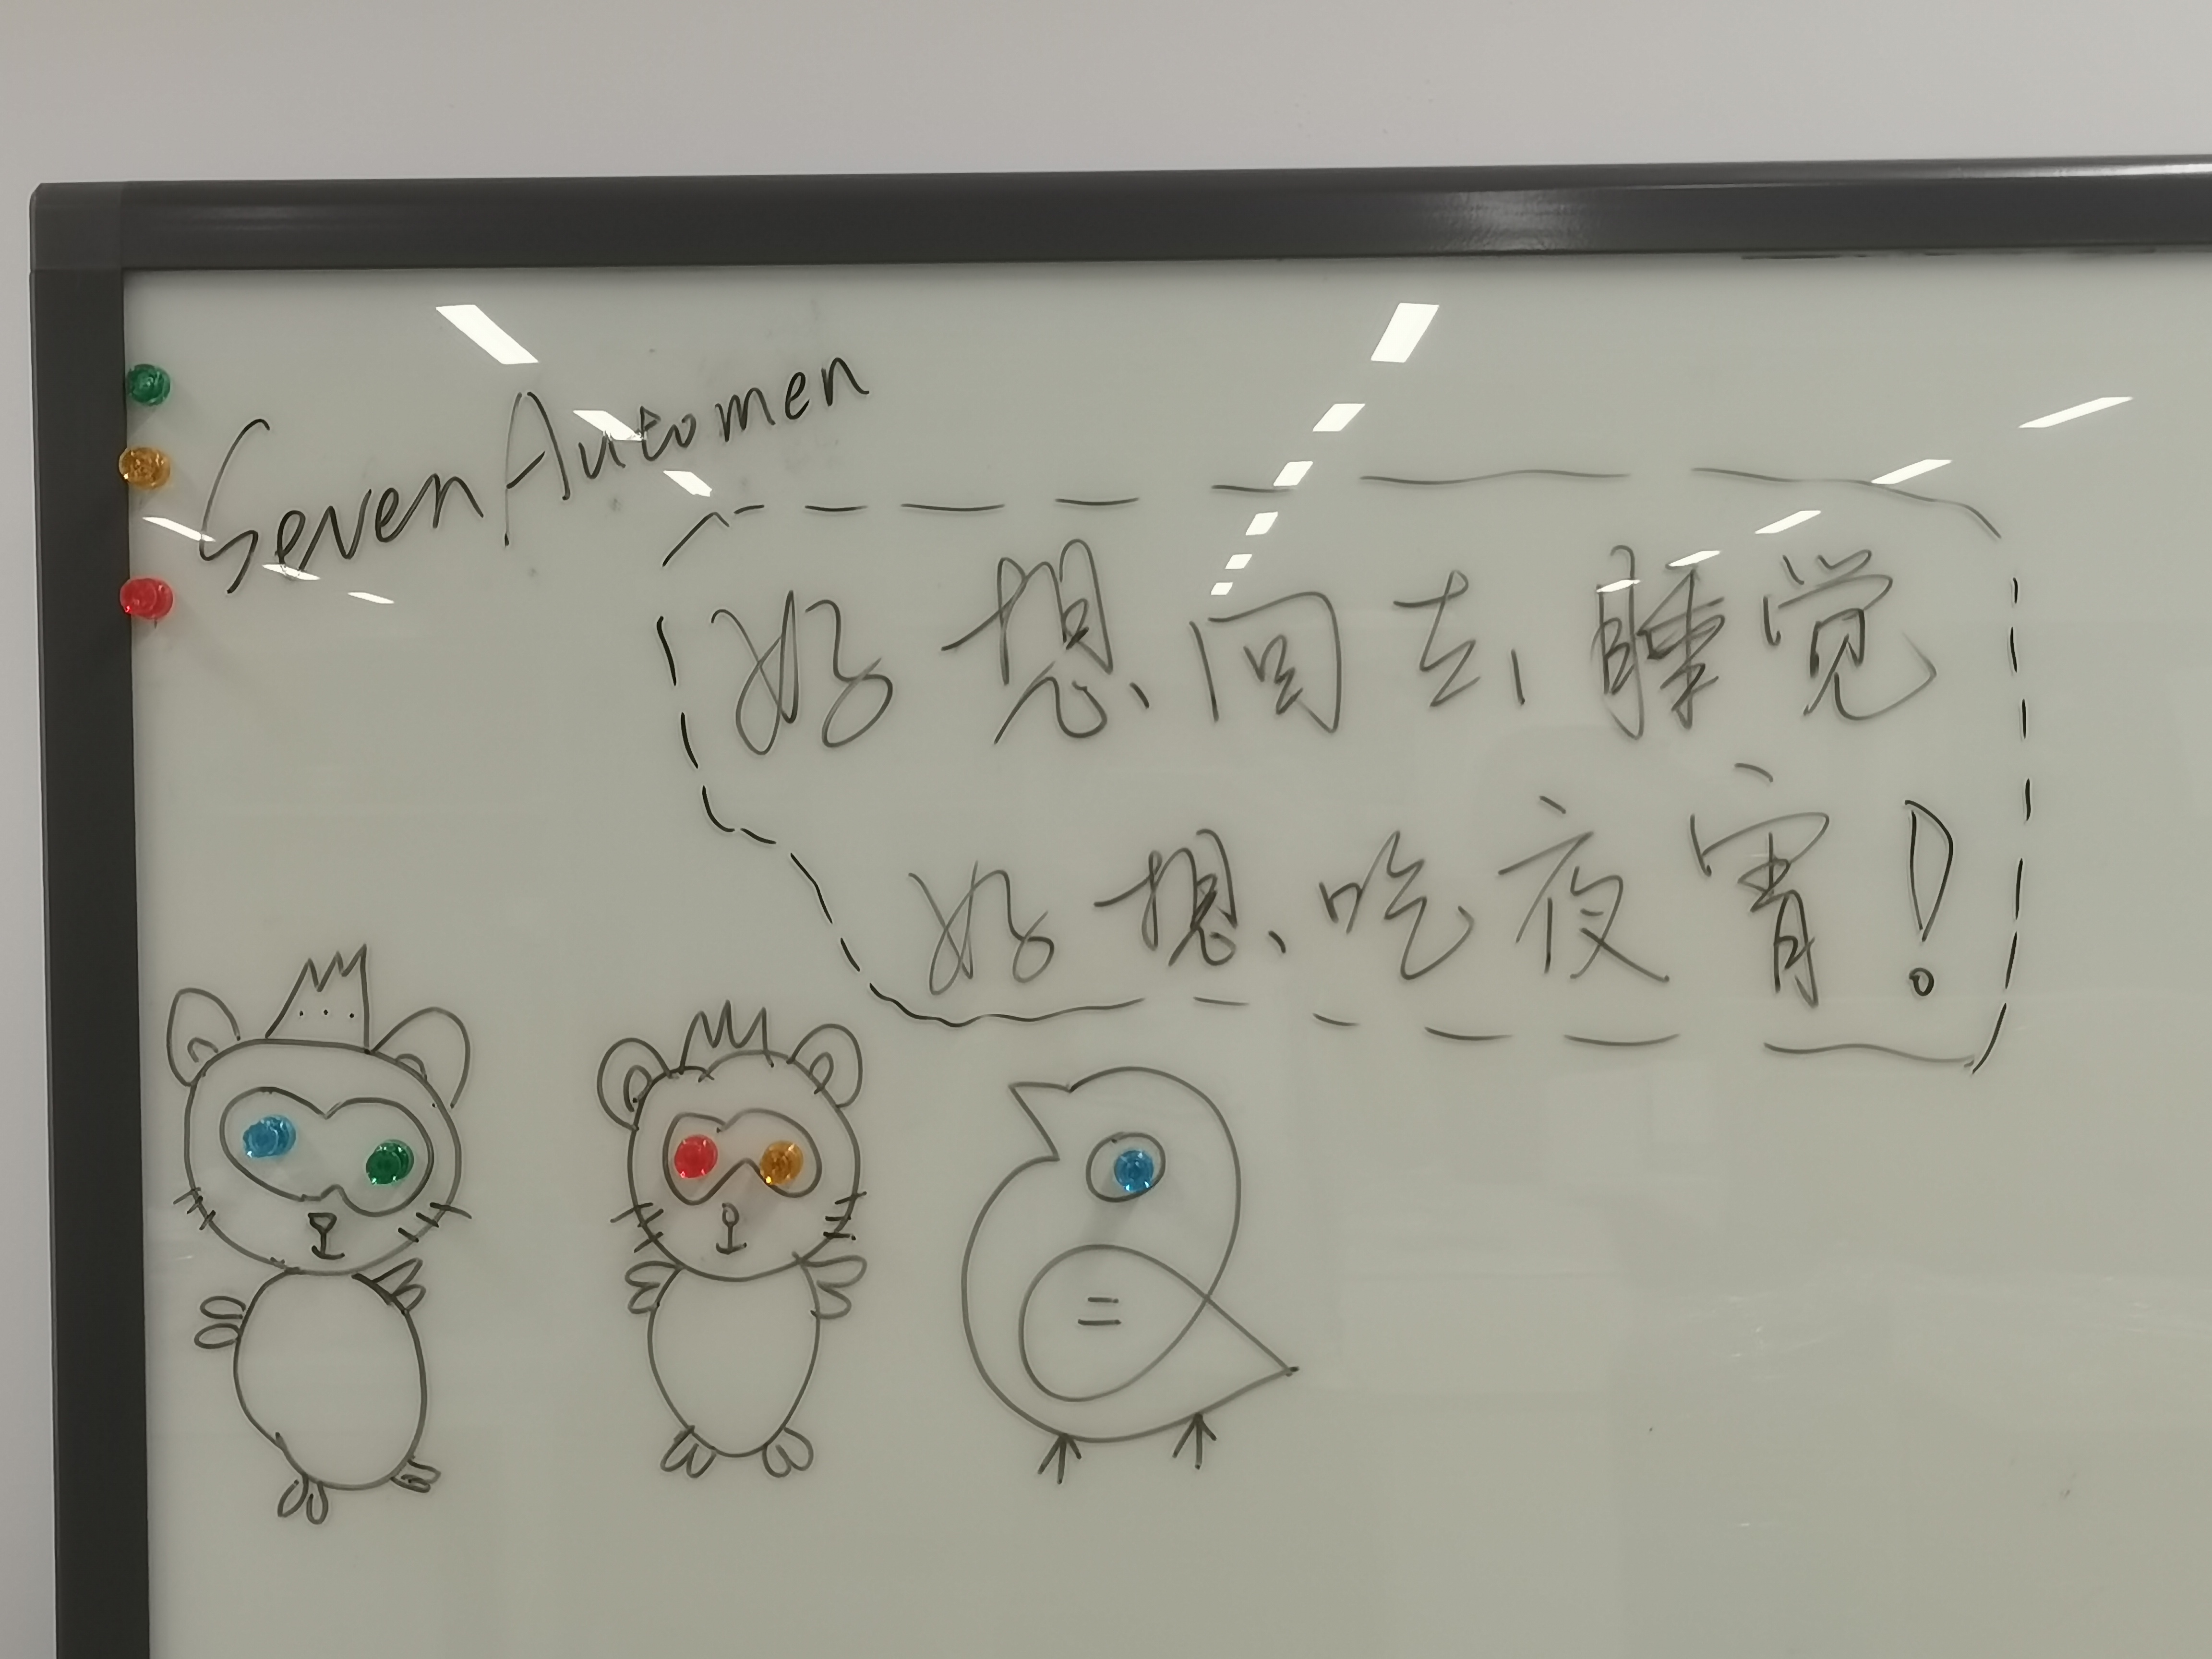 SevenAutomen
好想回去睡觉
好想吃夜宵！